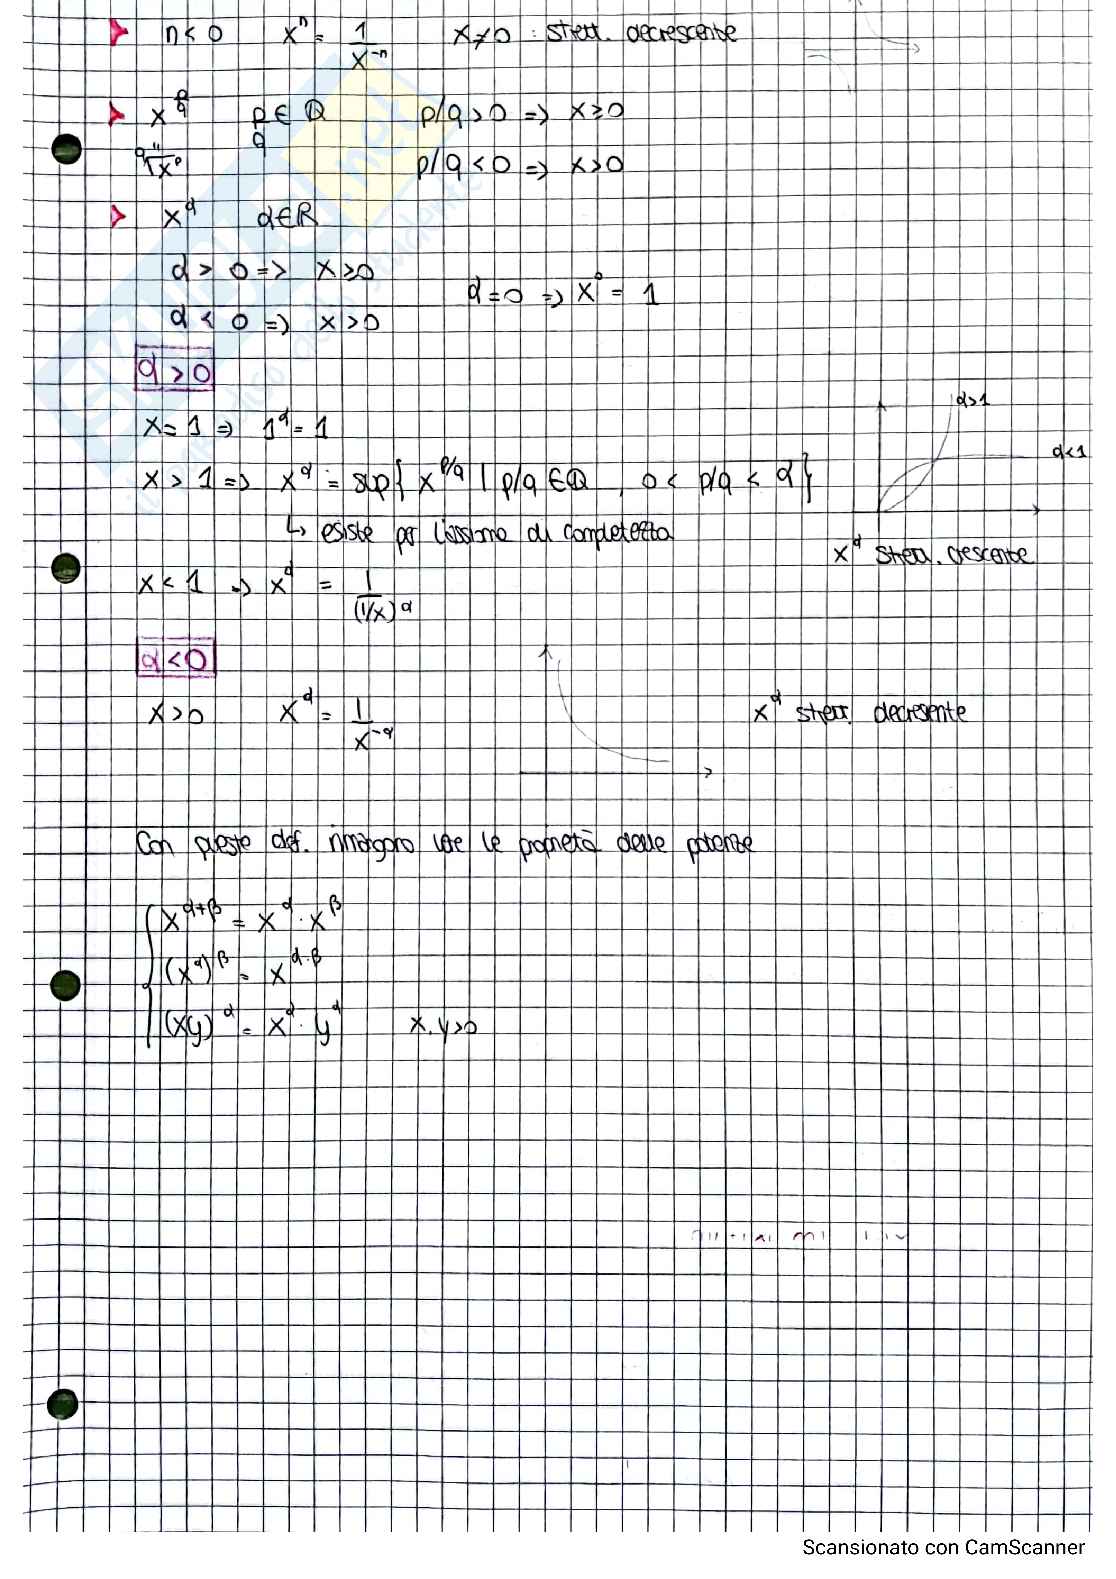 n < 0 xⁿ = 1/x⁻ⁿ x ≠ 0 : strett. decrescente
x^(p/q) p/q ∈ ℚ p/q > 0 => x ≥ 0
" 
q√x^p p/q < 0 => x > 0
x^α α ∈ ℝ
α > 0 => x ≥ 0
α = 0 => x⁰ = 1
α < 0 => x > 0
α > 0
α>1
x = 1 => 1^α = 1
α<1
x > 1 => x^α = sup{ x^(p/q) | p/q ∈ ℚ , 0 < p/q < α }
↳ esiste per l'assioma di completezza
x^α strett. crescente
x < 1 => x^α = 1/(1/x)^α
α < 0
x > 0 x^α = 1/x^(-α) x^α strett. decresente
Con queste def. rimangono le proprietà delle potenze
x^(α+β) = x^α · x^β
(x^α)^β = x^(α·β)
(xy)^α = x^α · y^α x, y > 0
Scansionato con CamScanner